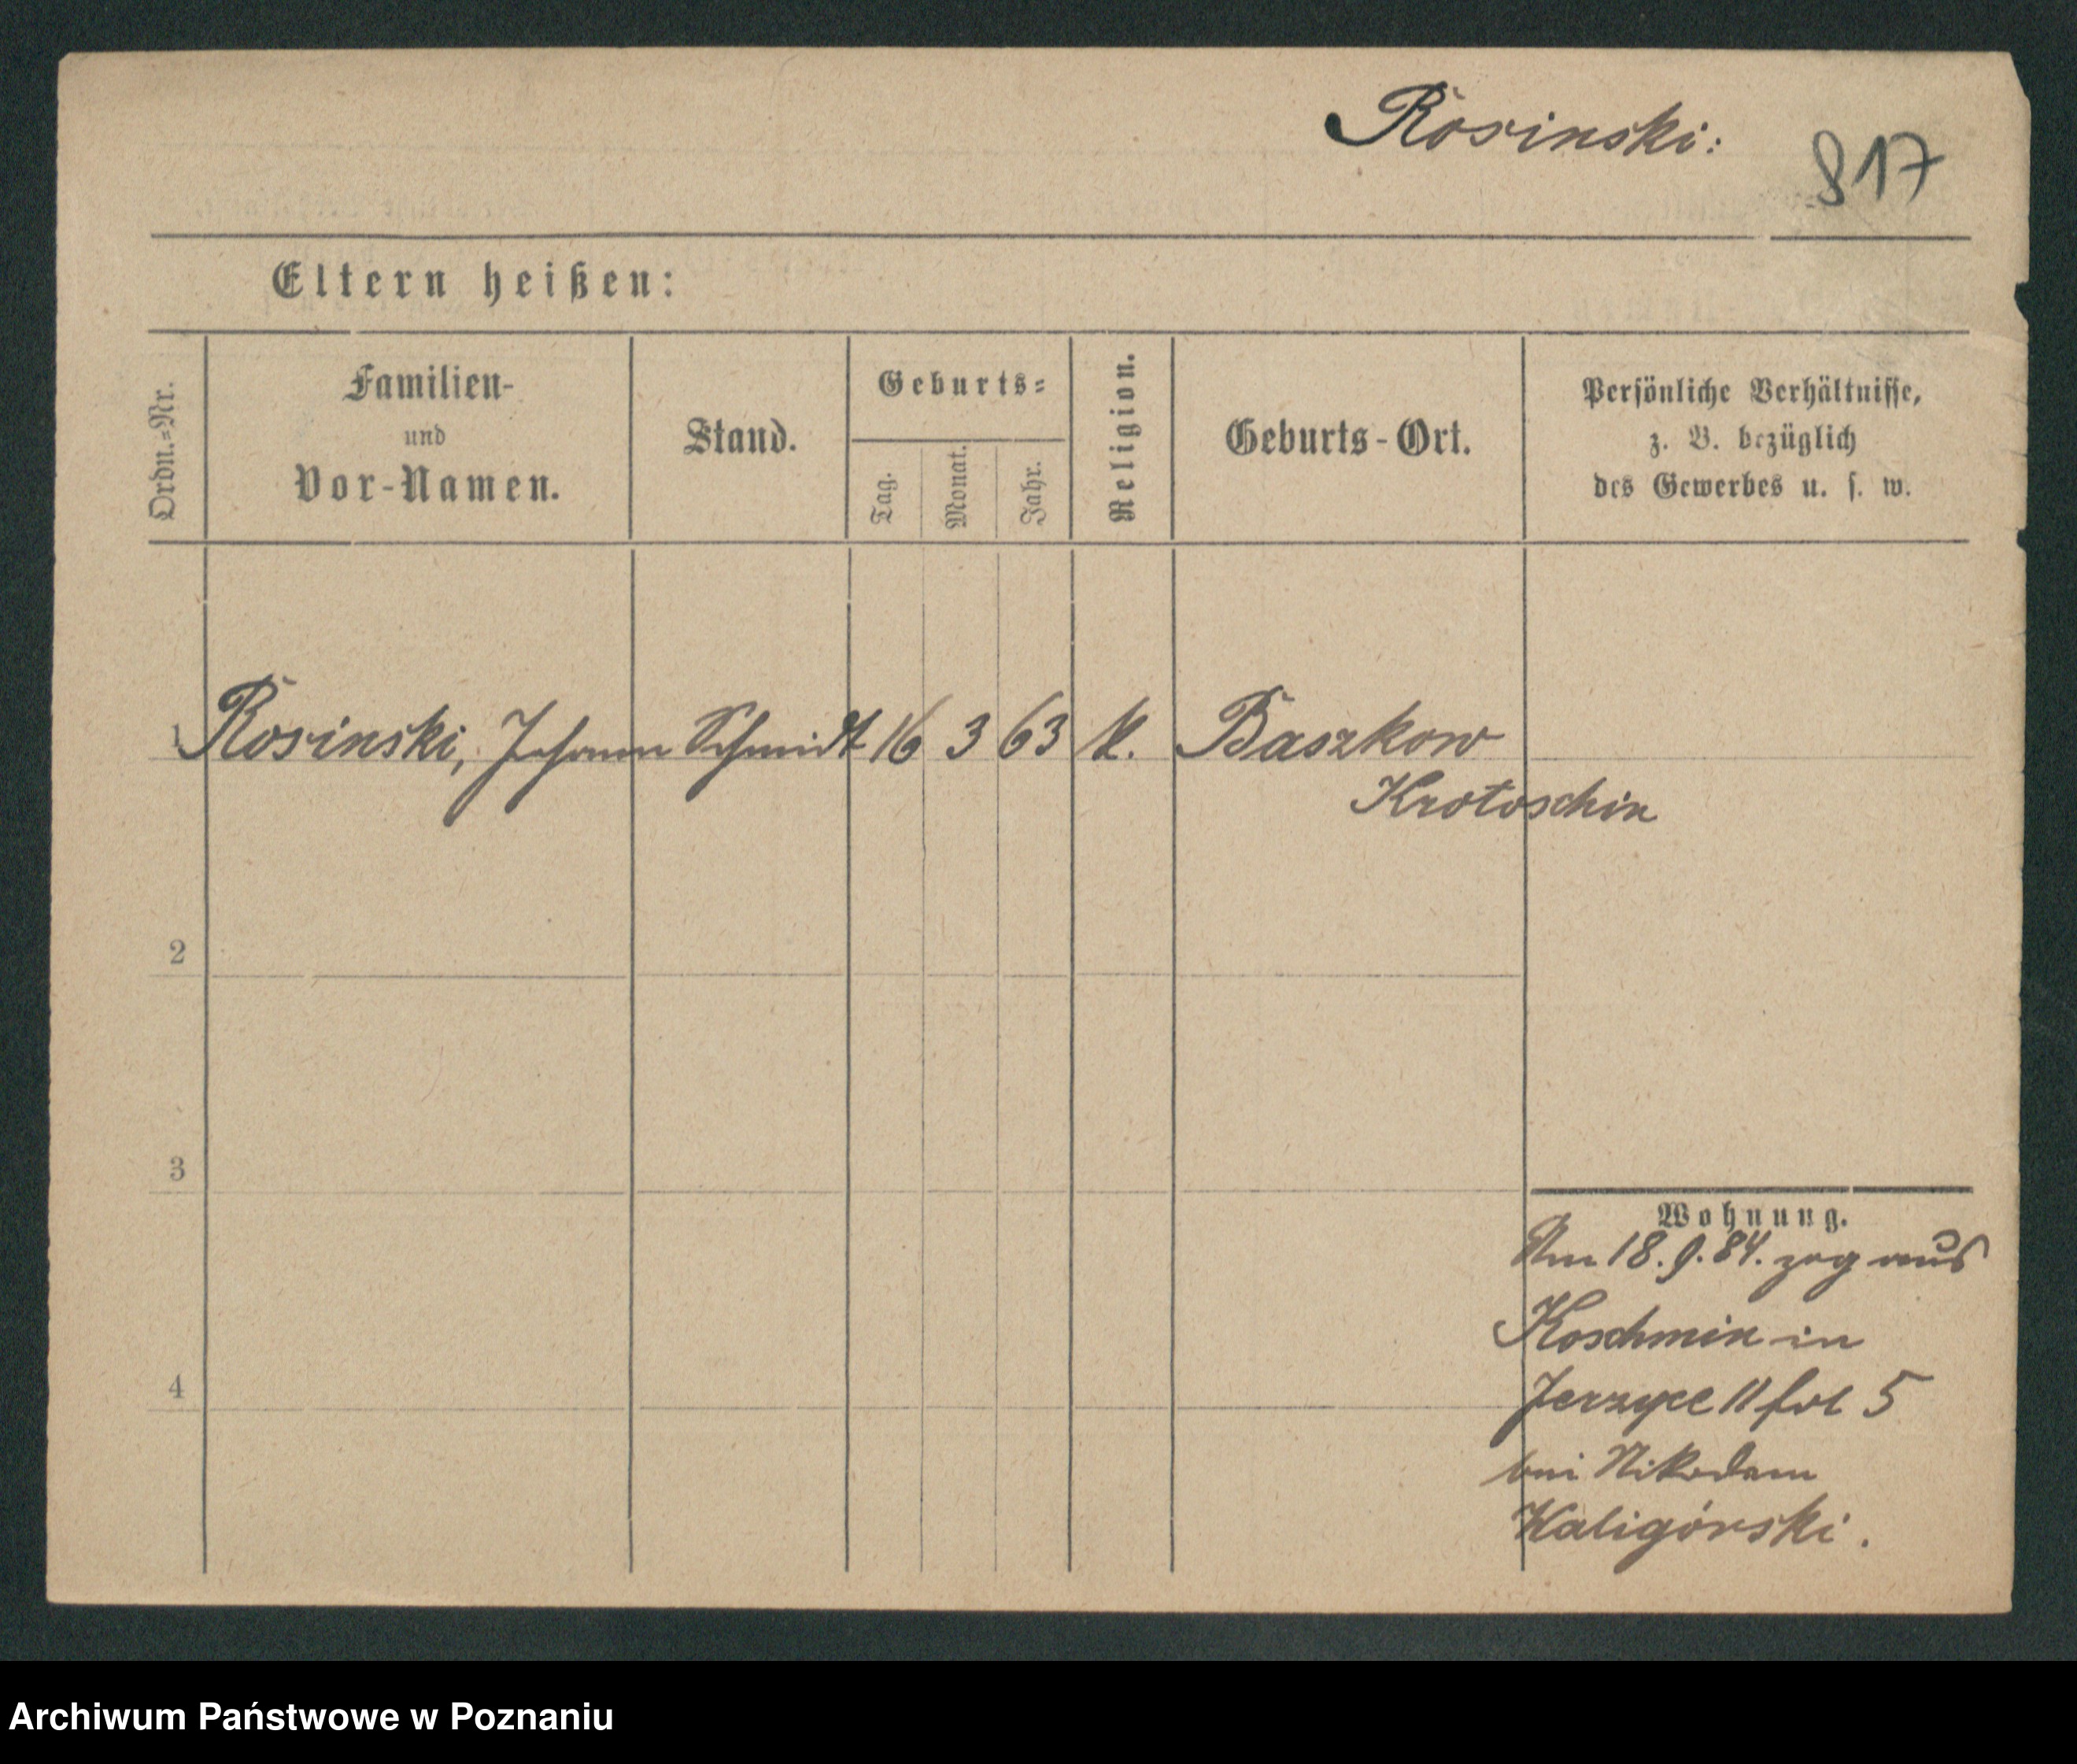 Rosinski:
817
Eltern heißen:
Ordn.=Nr.
Familien-
und
Vor-Namen.
Stand.
Geburts=
Tag.
Monat.
Jahr.
Religion.
Geburts-Ort.
Persönliche Verhältnisse,
z. B. bezüglich
des Gewerbes u. s. w.
1 Rosinski, Johann Schmidt 16 3 63 k. Baszkow
Krotoschin
2
3
Wohnung.
Am 18.9.84. zog aus
Koschmin in
4
Jerzyce 11 fol 5
bei Nikodem
Kaligórski.
Archiwum Państwowe w Poznaniu